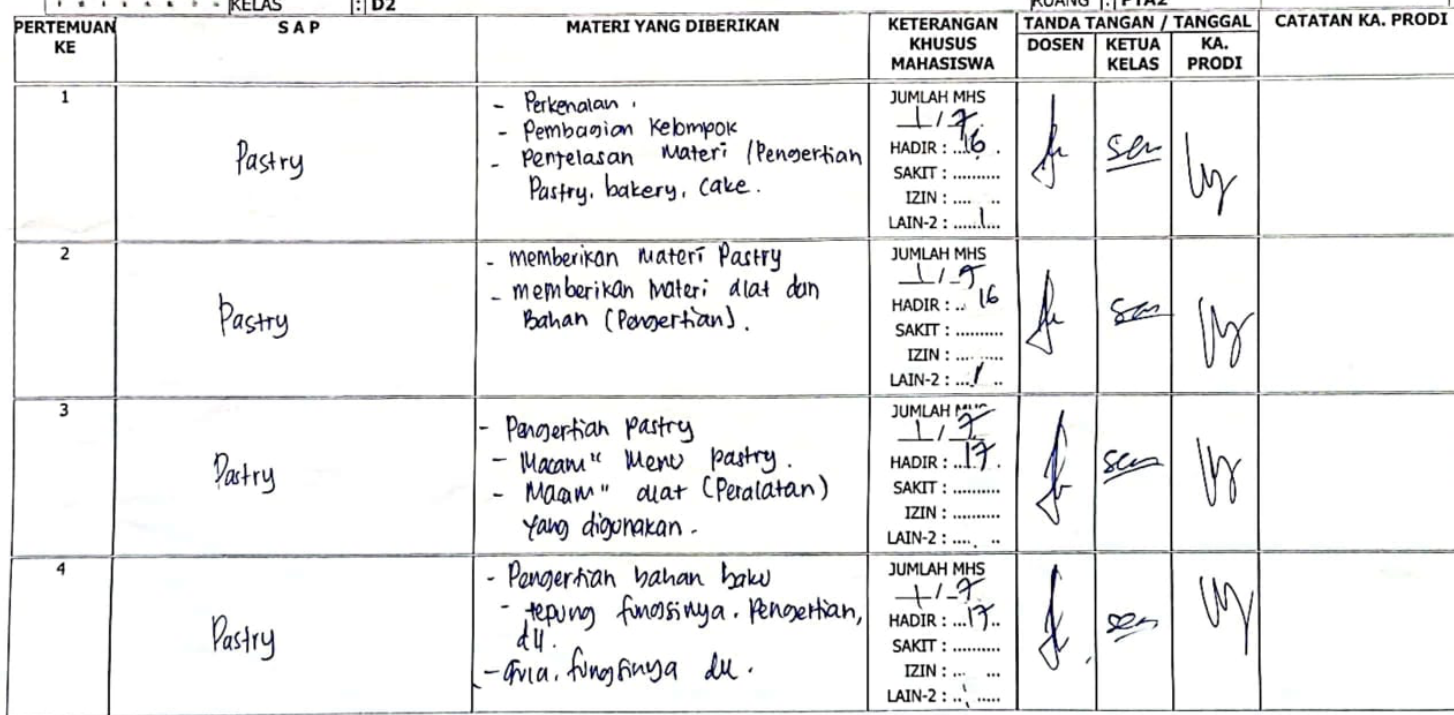 KELAS : D2
RUANG : PTA2
PERTEMUAN KE
SAP
MATERI YANG DIBERIKAN
KETERANGAN KHUSUS MAHASISWA
TANDA TANGAN / TANGGAL
DOSEN
KETUA KELAS
KA. PRODI
CATATAN KA. PRODI
1
Pastry
- Perkenalan.
- Pembagian Kelompok
- Penjelasan Materi (Pengertian
Pastry, bakery, cake.
JUMLAH MHS
1 / 7
HADIR : ...16 .
SAKIT : ..........
IZIN : .... ..
LAIN-2 : ......1...
2
Pastry
- memberikan Materi Pastry
- memberikan Materi alat dan
Bahan (Pengertian).
JUMLAH MHS
1 / 7
HADIR : .. 16
SAKIT : ..........
IZIN : .... .....
LAIN-2 : ...1 ..
3
Pastry
- Pengertian pastry
- Macam" Menu pastry.
- Macam" alat (Peralatan)
yang digunakan.
JUMLAH MHS
1 / 7
HADIR : ...17 .
SAKIT : ..........
IZIN : ..........
LAIN-2 : .... ..
4
Pastry
- Pengertian bahan baku
- tepung fungsinya. Pengertian,
dll.
- Gula. fungsinya dll.
JUMLAH MHS
1 / 7
HADIR : ...17..
SAKIT : ..........
IZIN : ... ...
LAIN-2 : .. .....